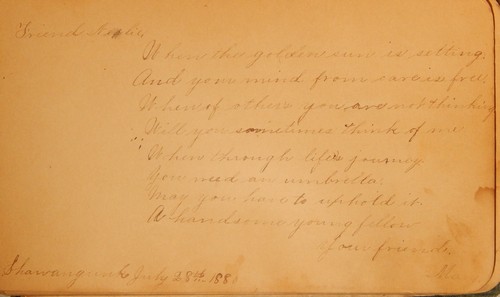 Friend
When the golden sun is setting.
And your mind from care is free.
When of others you are not thinking
Will you sometimes think of me
When through life's journey
You need an umbrella.
May you have to uphold it
A handsome young fellow
Your friend.
Shawangunk July 28th 188